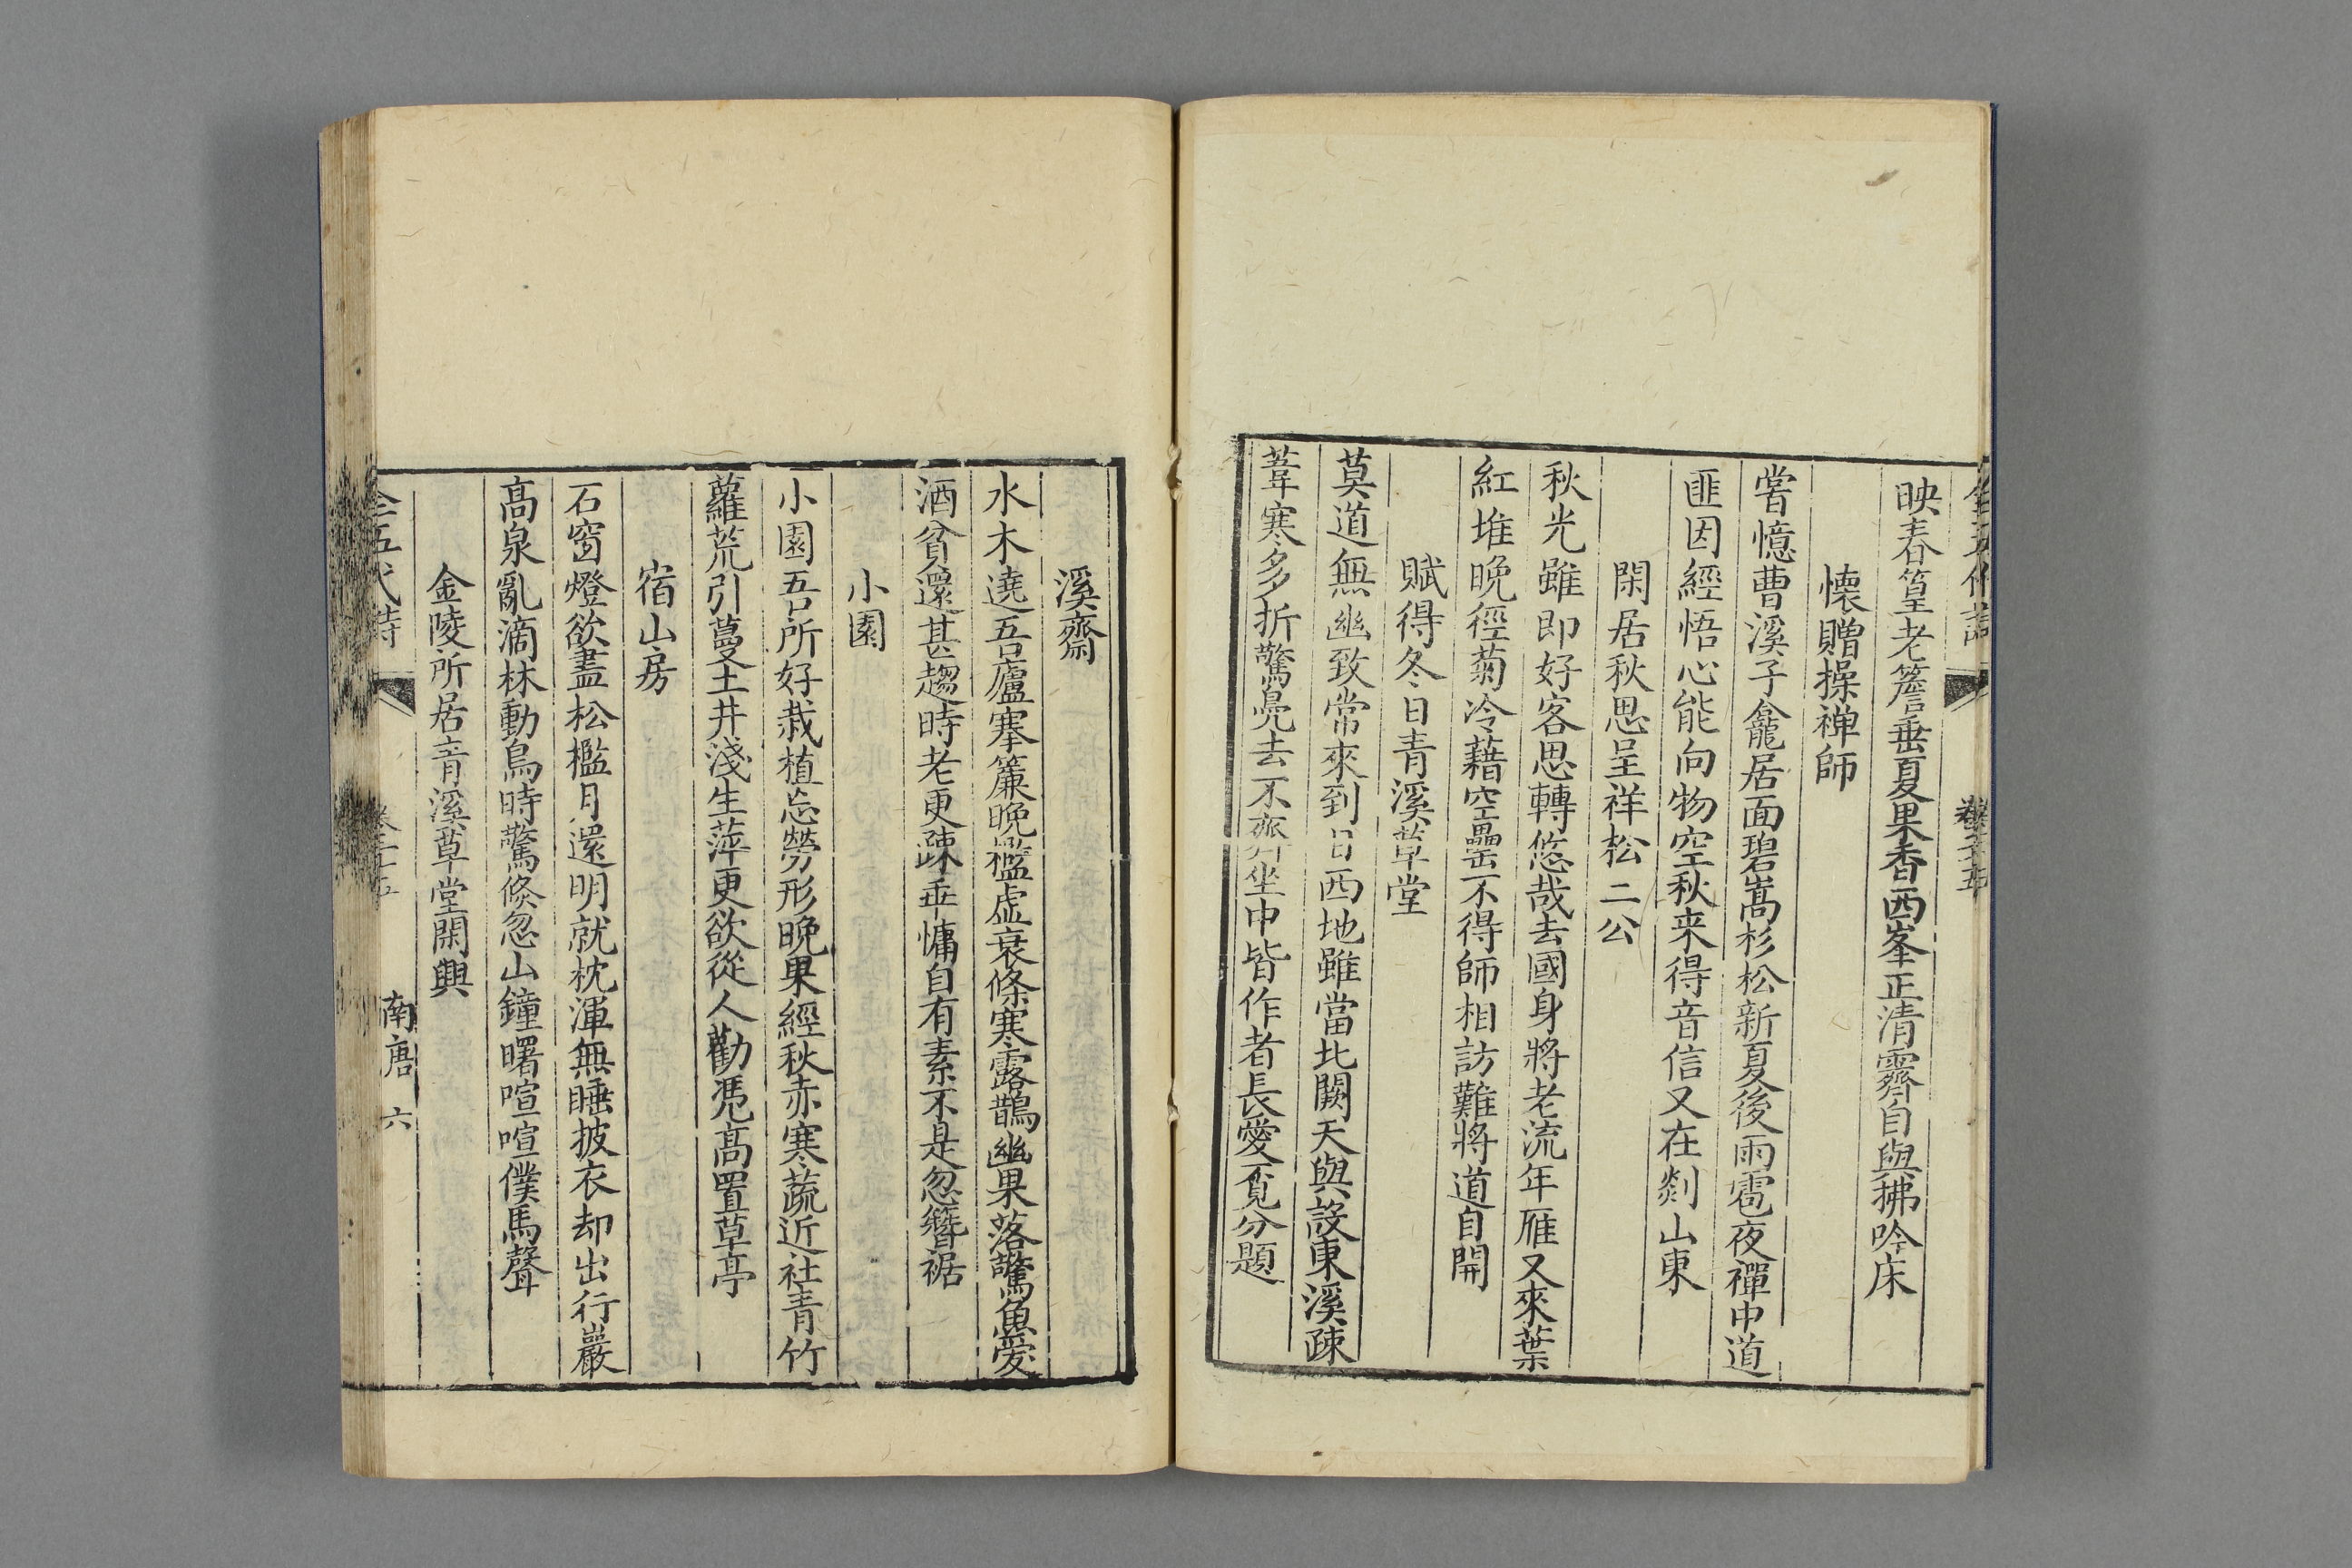 映春篁老簷垂夏果香西峯正清霽自與拂吟床
懷贈操禅師
嘗憶曹溪子龕居面碧嵩杉松新夏後雨雹夜禪中道
匪因經悟心能向物空秋来得音信又在剡山東
閑居秋思呈祥松二公
秋光雖即好客思轉悠哉去國身將老流年雁又來葉
紅堆晚徑菊冷藉空罍不得師相訪難將道自開
賦得冬日青溪草堂
莫道無幽致常來到日西地雖當北闕天與設東溪疎
葦寒多折驚鳧去不齊坐中皆作者長愛覔分題
溪齋
水木遶吾廬搴簾晚檻虛衰條寒露鵲幽果落驚魚愛
酒貧還甚趨時老更疎乖慵自有素不是忽簪裾
小園
小園吾所好栽植忘勞形晚果經秋赤寒蔬近社青竹
蘿荒引蔓土井淺生萍更欲從人勸憑高置草亭
宿山房
石窗燈欲盡松檻月還明就枕渾無睡披衣却出行巖
高泉亂滴林動鳥時驚倐忽山鐘曙喧喧僕馬聲
金陵所居青溪草堂閑興
全五代詩 卷三十五 南唐 六